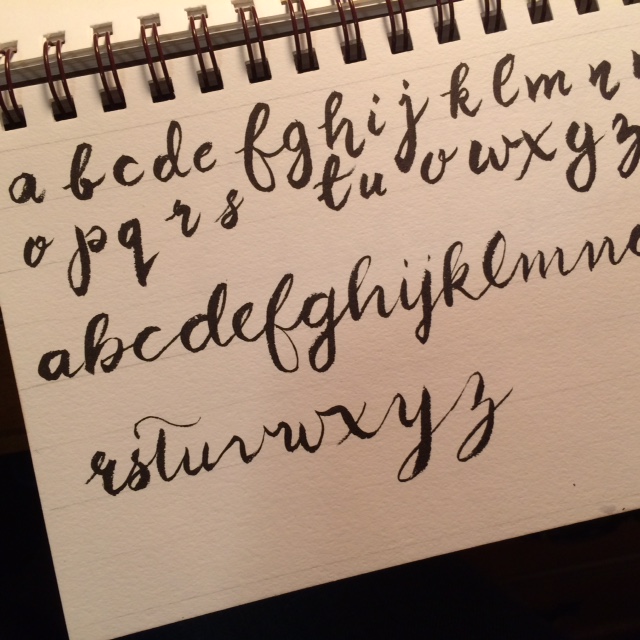 a b c d e f g h i j k l m n
o p q r s t u v w x y z
abcdefghijklmno
rstuvwxyz